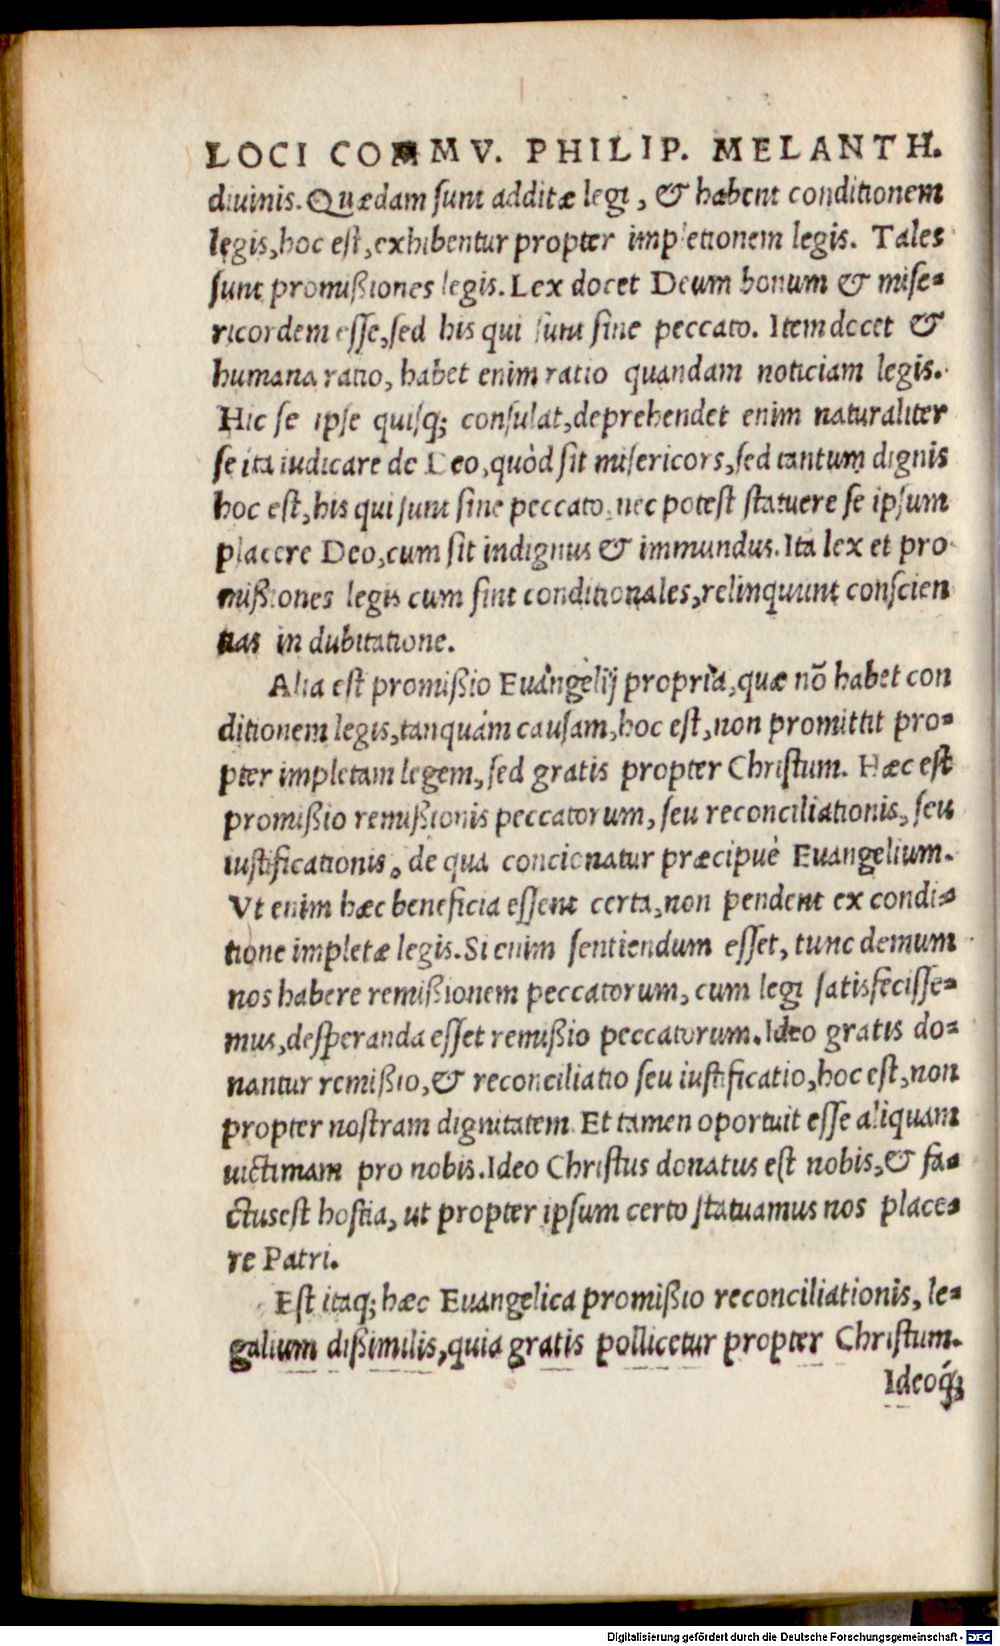 LOCI COMMV. PHILIP. MELANTH.
diuinis. Quædam sunt additæ legi, & habent conditionem
legis, hoc est, exhibentur propter impletionem legis. Tales
sunt promißiones legis. Lex docet Deum bonum & mise-
ricordem esse, sed his qui sunt sine peccato. Item docet &
humana ratio, habet enim ratio quandam noticiam legis.
Hic se ipse quisq; consulat, deprehendet enim naturaliter
se ita iudicare de Deo, quòd sit misericors, sed tantum dignis
hoc est, his qui sunt sine peccato, nec potest statuere se ipsum
placere Deo, cum sit indignus & immundus. Ita lex et pro
mißiones legis cum sint conditionales, relinquunt conscien
tias in dubitatione.
Alia est promißio Euangelij propria, quæ nō habet con
ditionem legis, tanquàm causam, hoc est, non promittit pro-
pter impletam legem, sed gratis propter Christum. Hæc est
promißio remißionis peccatorum, seu reconciliationis, seu
iustificationis, de qua concionatur præcipuè Euangelium.
Vt enim hæc beneficia essent certa, non pendent ex condi-
tione impletæ legis. Si enim sentiendum esset, tunc demum
nos habere remißionem peccatorum, cum legi satisfecisse-
mus, desperanda esset remißio peccatorum. Ideo gratis do-
nantur remißio, & reconciliatio seu iustificatio, hoc est, non
propter nostram dignitatem. Et tamen oportuit esse aliquam
uictimam pro nobis. Ideo Christus donatus est nobis, & fa-
ctus est hostia, ut propter ipsum certo statuamus nos place-
re Patri.
Est itaq; hæc Euangelica promißio reconciliationis, le-
galium dißimilis, quia gratis pollicetur propter Christum.
Ideoq́;
Digitalisierung gefördert durch die Deutsche Forschungsgemeinschaft - DFG